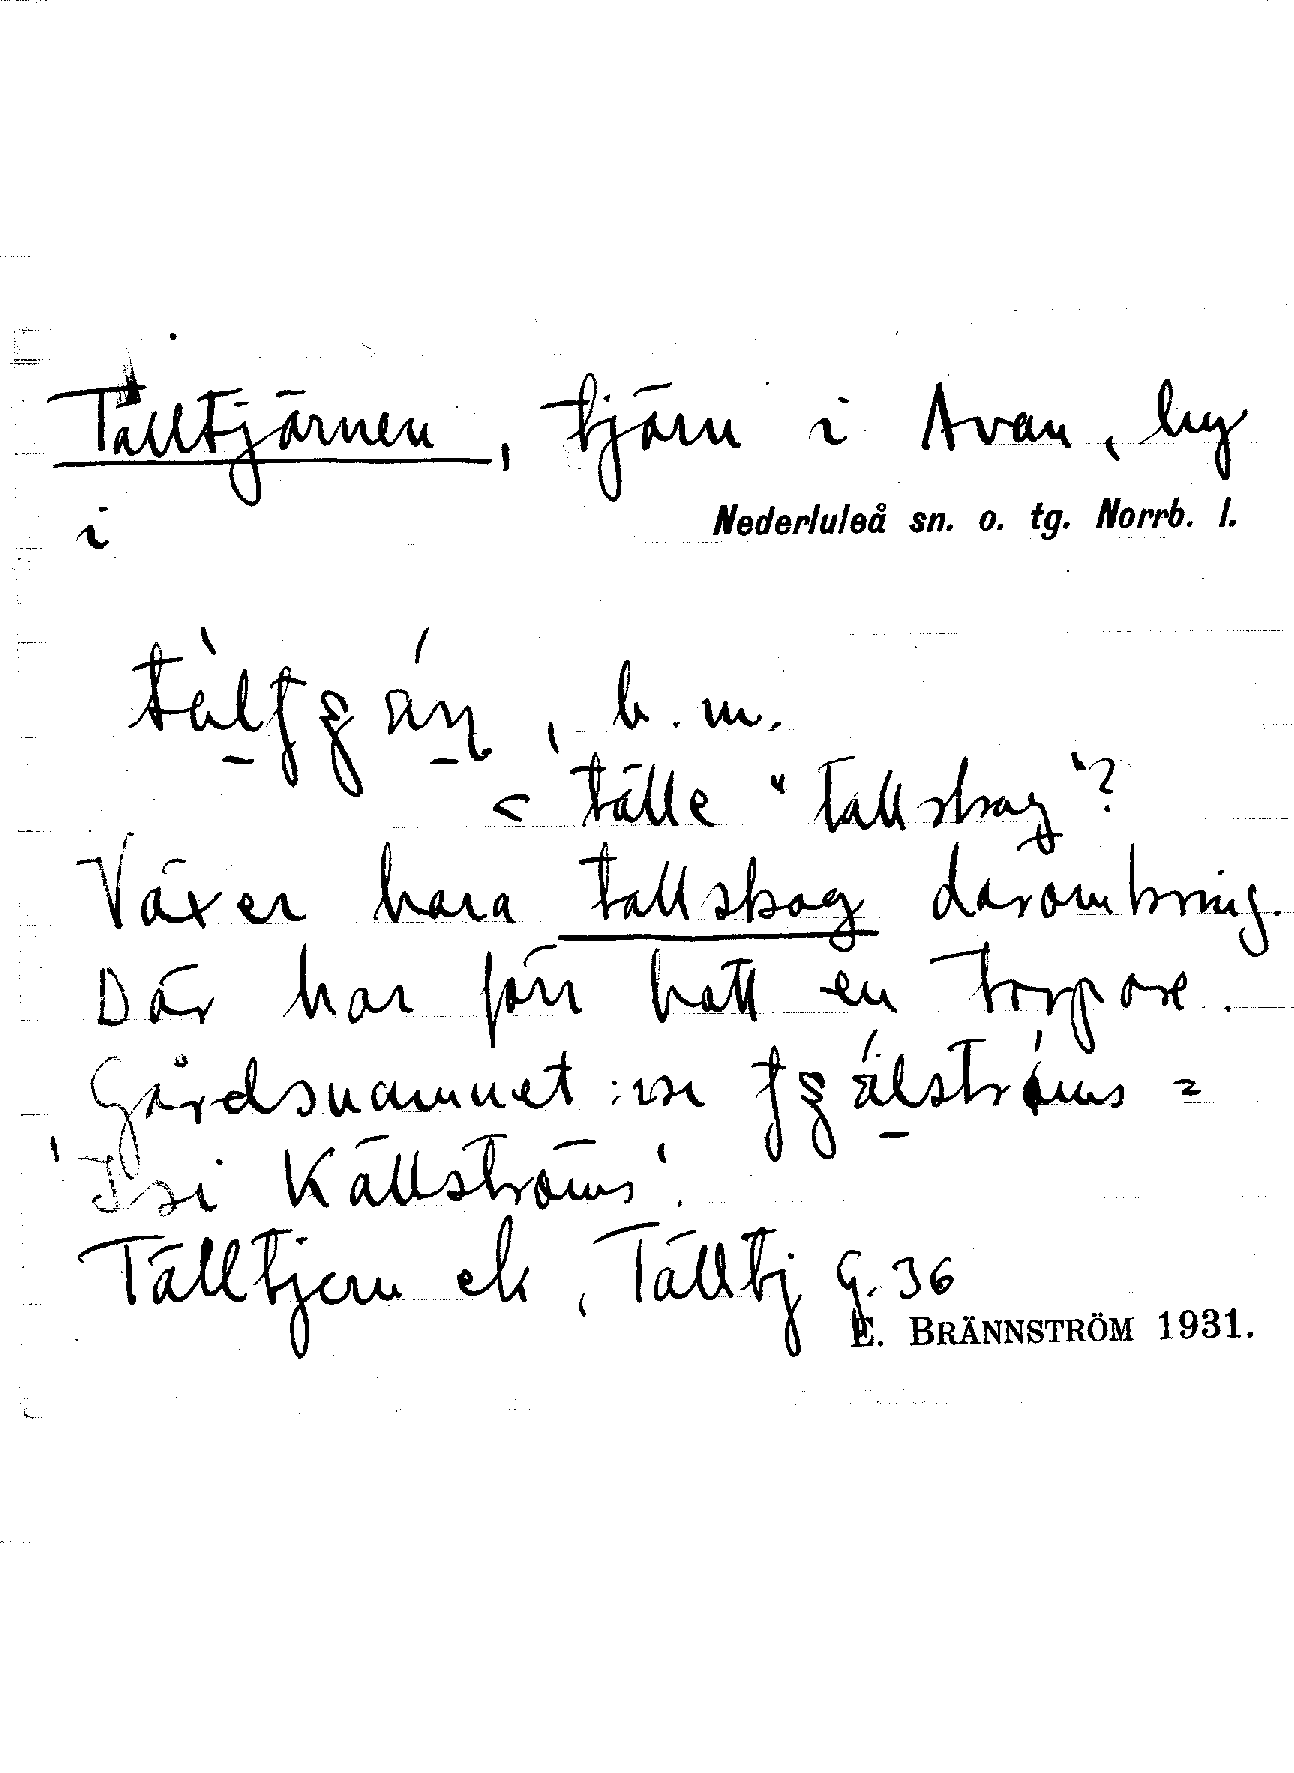 Talltjärnen, tjärn i Avan, by
i Nederluleå sn. o. tg. Norrb. l.
b. m.
< tälle "tallskog"?
Växer bara tallskog däromkring.
Där har förr bott en torpare.
Gårdsnamnet:
Källströms'.
Tälltjern ek, Tälltj G. 36
E. BRÄNNSTRÖM 1931.